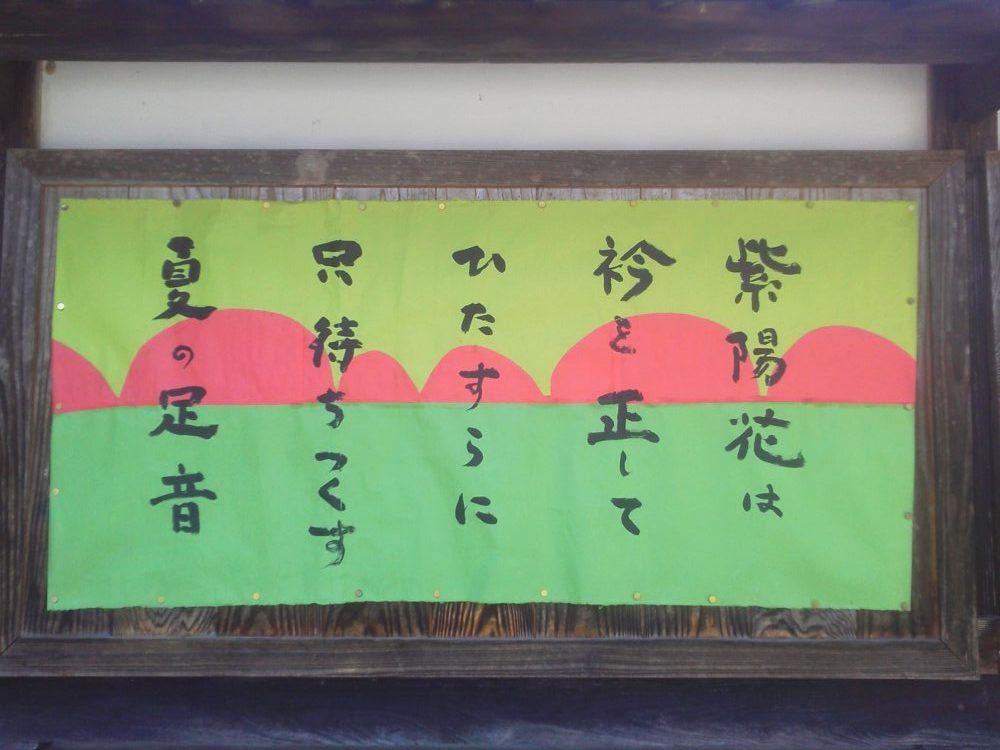 紫陽花は
衿を正して
ひたすらに
只待ちつくす
夏の足音